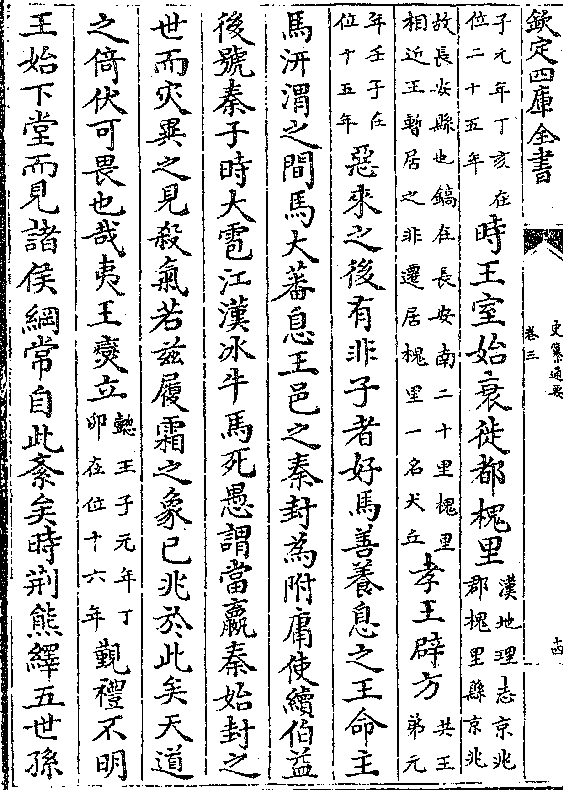 欽定四庫全書
史纂通要
卷三
十四
子元年丁亥在位二十五年時王室始衰徙都槐里漢地理志京兆郡槐里縣京兆
故長安縣也鎬在長安南二十里槐里相近王暫居之非遷居槐里一名犬丘孝王辟方共王弟元
年壬子在位十五年惡來之後有非子者好馬善養息之王命主
馬汧渭之間馬大蕃息王邑之秦封為附庸使續伯益
後號秦子時大雹江漢冰牛馬死愚謂當嬴秦始封之
世而灾異之見殺氣若兹履霜之象已兆於此矣天道
之倚伏可畏也哉夷王燮立懿王子元年丁卯在位十六年覲禮不明
王始下堂而見諸侯綱常自此紊矣時荆熊繹五世孫